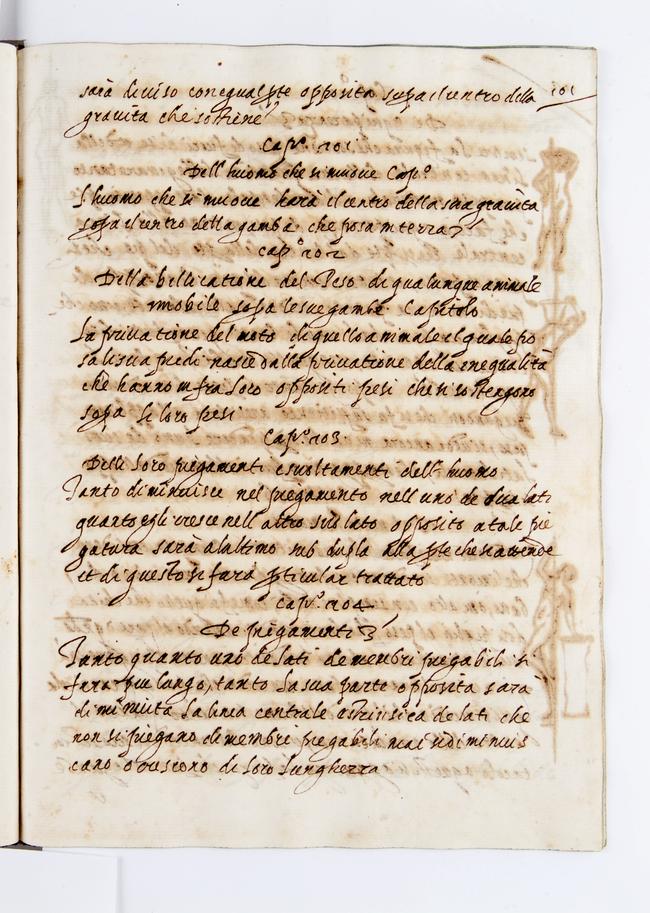 101
sarà diviso con equal pte opposita sopa il centro della
gravità che sostiene
Cap.º 101
Dell huomo che si muove Cap.º
L huomo che si muove harà il centro della sua gravità
sopa il centro della gamba che posa in terra
cap.º 102
Della bilicatione del Peso di qualunque animale
mobile sopa le sue gambe Capitolo
La privatione del moto di quello animale il quale po
sa li sua piedi nasce dalla privatione della inequalità
che hanno infra loro oppositi pesi che si sostengono
sopa li loro pesi
Cap.º 103.
Delli loro piegamenti e svoltamenti dell huomo
Tanto diminuisce nel piegamento nell uno de dua lati
quanto egli cresce nell altro suo lato opposito a tale pie
gatura sarà al ultimo sub dupla alla pte che si
et di questo si farà pticular trattato
cap.º 104
De piegamenti
Tanto quanto uno de lati de membri piegabili si
farà piu lungo, tanto la sua parte opposita sarà
diminuita la linea centrale estrinsica de lati che
non si piegano de membri piegabili mai diminuis
cano o crescono di loro lungheza